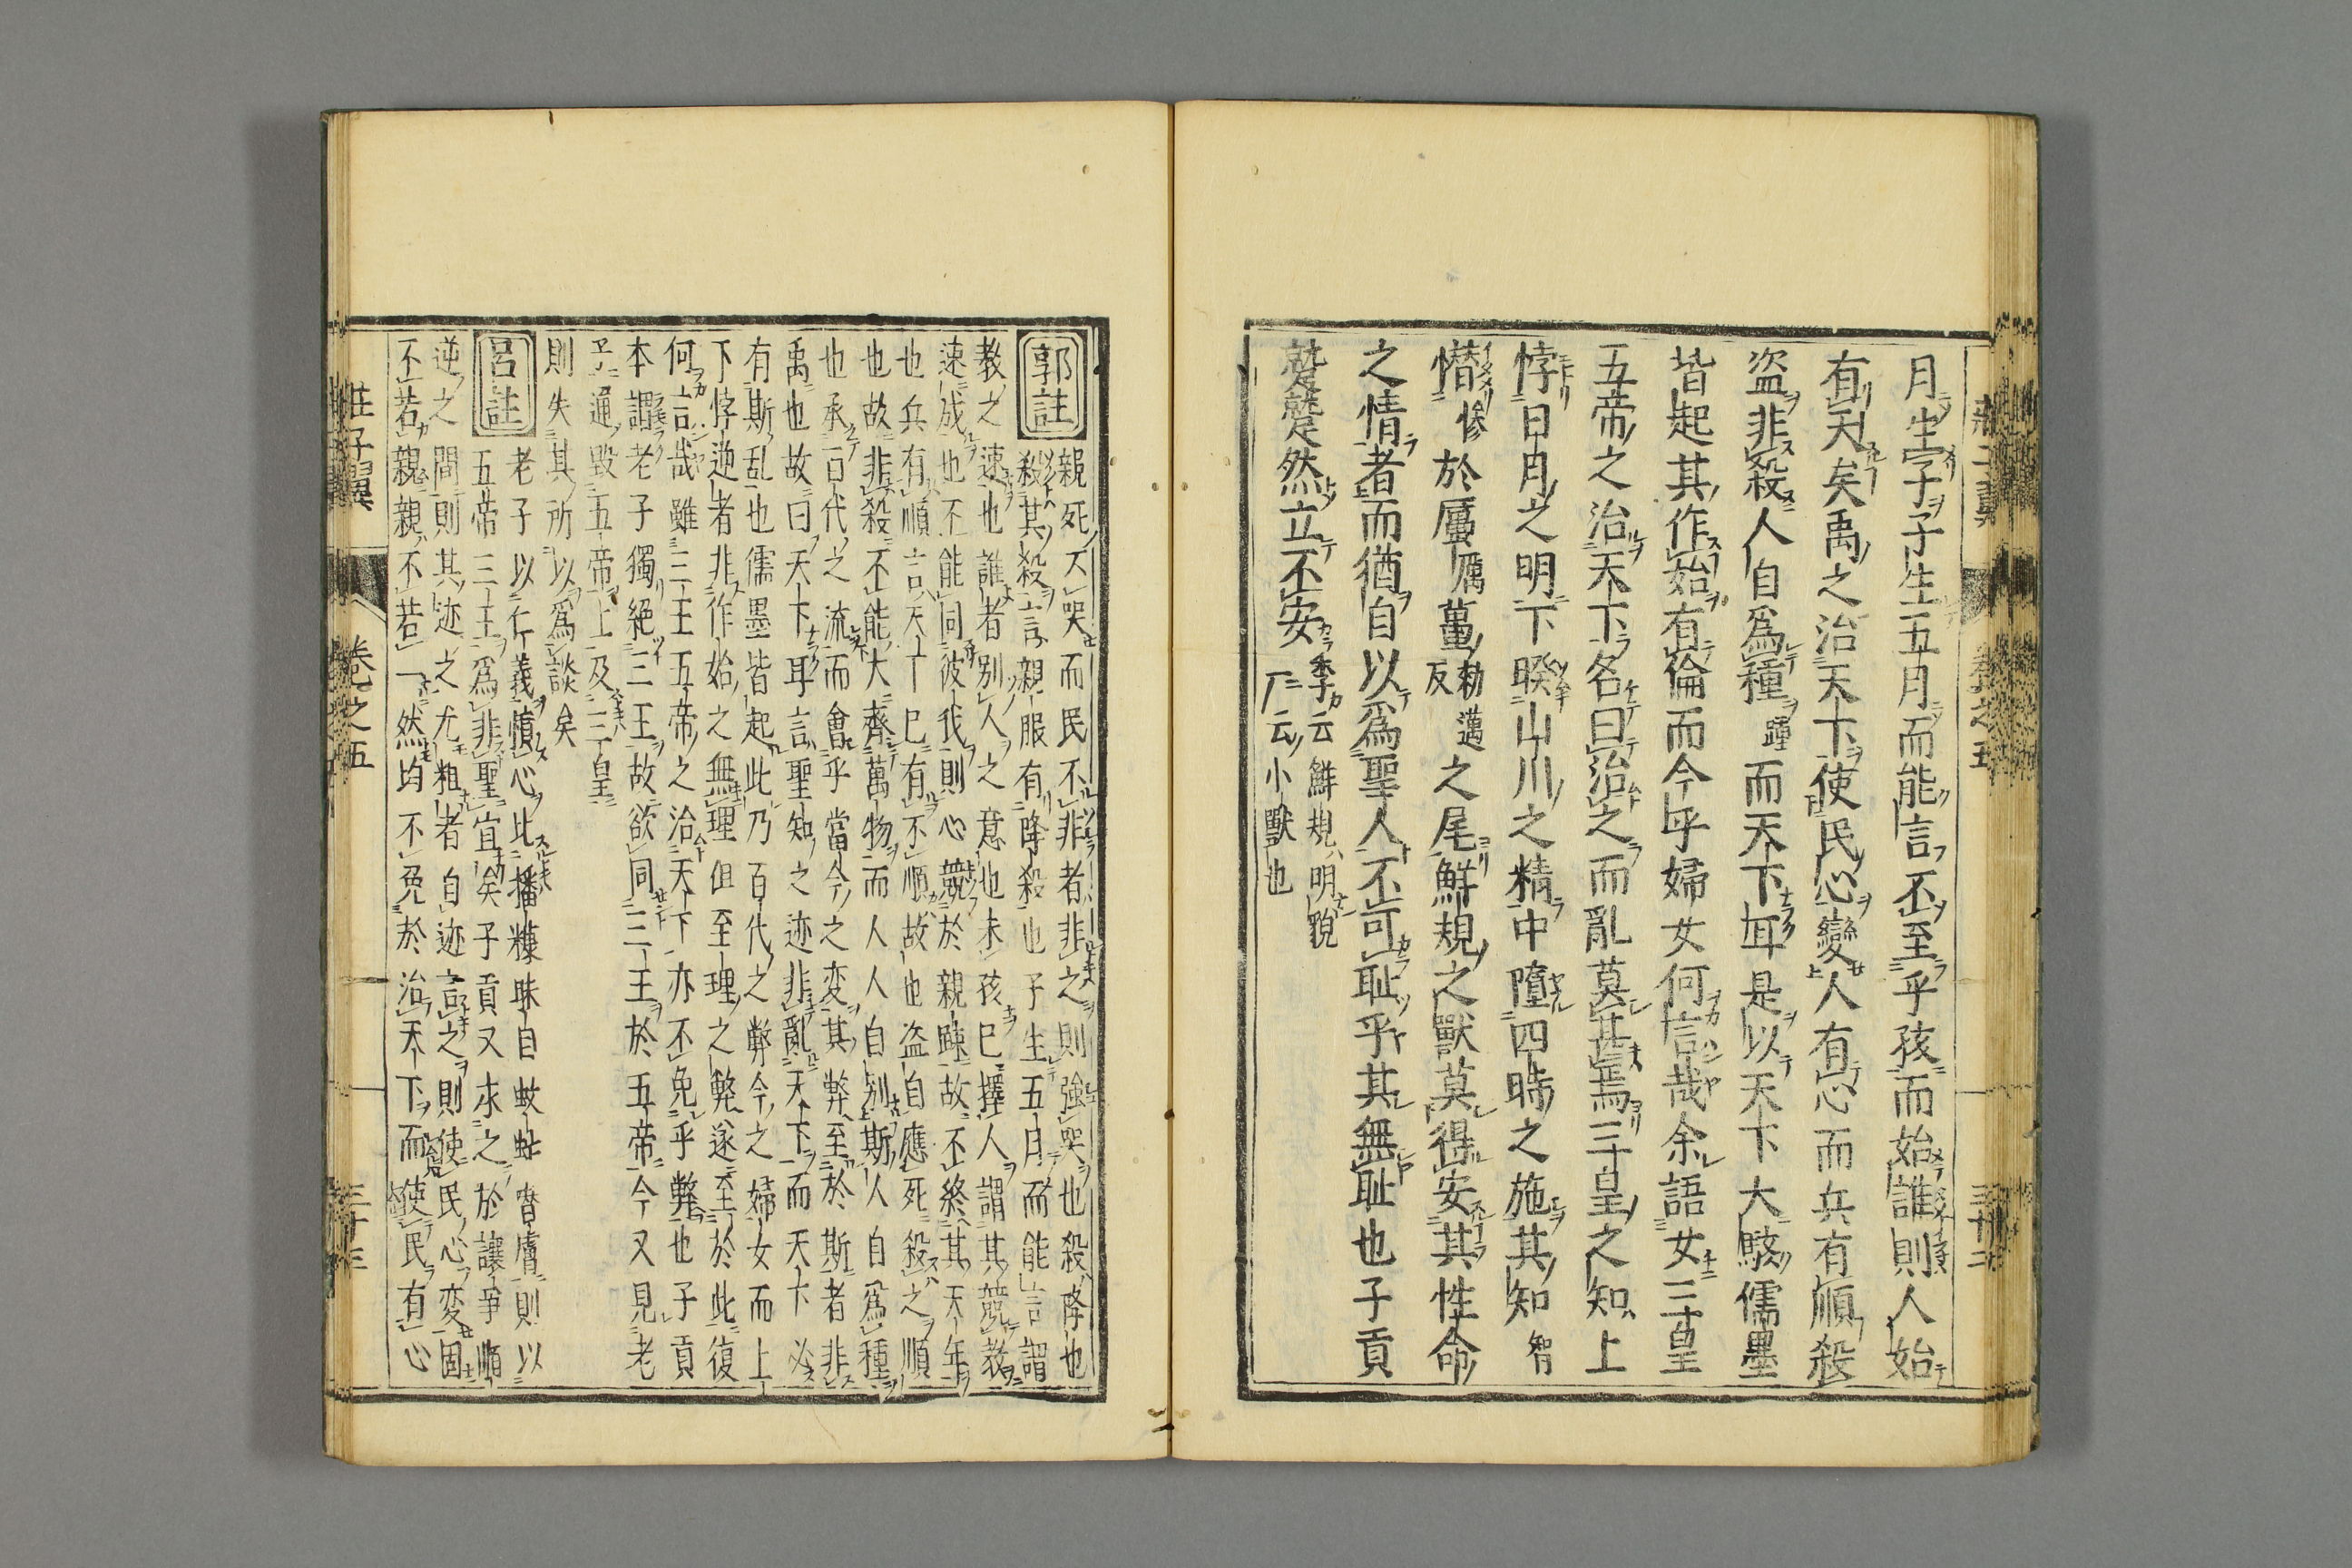 月生子子生五月而能言不至乎孩而始誰則人始
有夭矣禹之治天下使民心變人有心而兵有順殺
盜非殺人自爲種踵而天下耳是以天下大駭儒墨
皆起其作始有倫而今乎婦女何言哉余語女三皇
五帝之治天下名曰治之而亂莫甚焉三皇之知上
悖日月之明下睽山川之精中墮四時之施其知智
憯慘於厲蠆勑邁反之尾鮮規之獸莫得安其性命
之情者而猶自以爲聖人不可恥乎其無恥也子貢
蹵蹵然立不安季云鮮規明貌
一云小獸也
郭註
親死不哭而民不非者非之則強哭也殺降也
殺其殺言親服有降殺也子生五月而能言謂
教之速也誰者別人之意也未孩已擇人謂其競教
速成也不能同彼我則心競於親踈故不終其天年
也兵有順言天下已有不順故也盜自應死殺之順
也故非殺不能大齊萬物而人人自別斯人自爲種
也承百代之流而會乎當今之変其弊至於斯者非
禹也故曰天下耳言聖知之迹非亂天下而天下必
有斯乱也儒墨皆起此乃百代之弊今之婦女而上
下悖逆者非作始之無理但至理之弊遂至於此復
何言哉雖三王五帝之治天下亦不免乎弊也子貢
本謂老子獨絕三王故欲同三王於五帝今又見老
子通毀五帝上及三皇
則失其所以爲談矣
呂註
老子以仁義憤心此播糠眯目蚊虻噆膚則以
五帝三王爲非聖宜矣子貢又求之於讓爭順
逆之間則其迹之尤粗者自迹言之則使民心変固
不若親親不若一然均不免於治天下而使民有心
莊子翼
卷之五
三十三